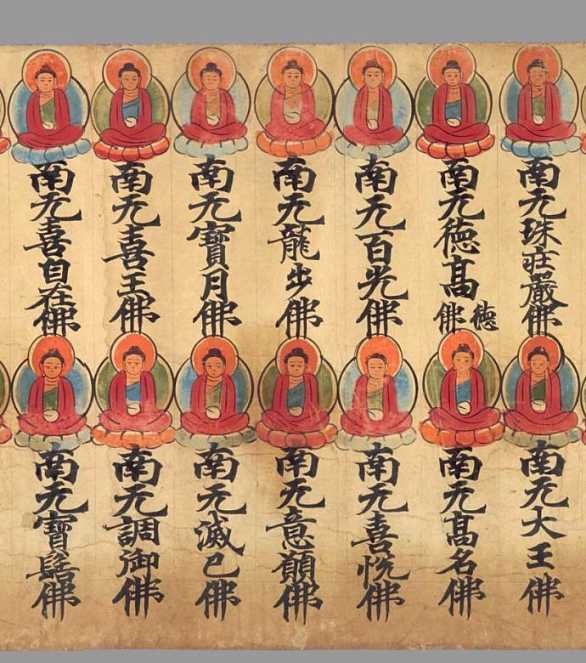 南无珠莊嚴佛
南无徳髙徳佛
南无百光佛
南无龍步佛
南无寶月佛
南无喜王佛
南无喜自在佛
南无大王佛
南无髙名佛
南无喜悦佛
南无意願佛
南无滅已佛
南无調御佛
南无寶髻佛